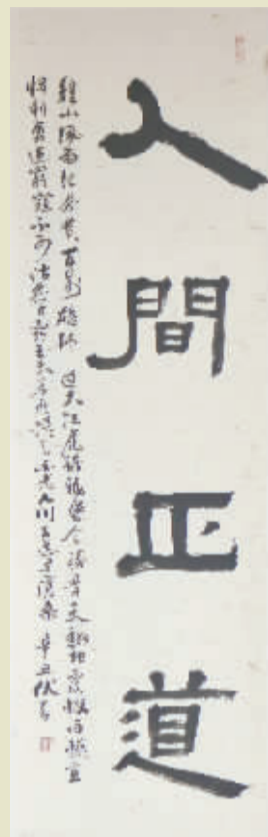 人間正道
鍾山風雨起蒼黄百万雄師过大江虎踞龍盤今勝昔天翻地覆慨而慷宜
将剩勇追窮寇不可沽名学霸王天若有情天亦老人间正道是滄桑 辛丑